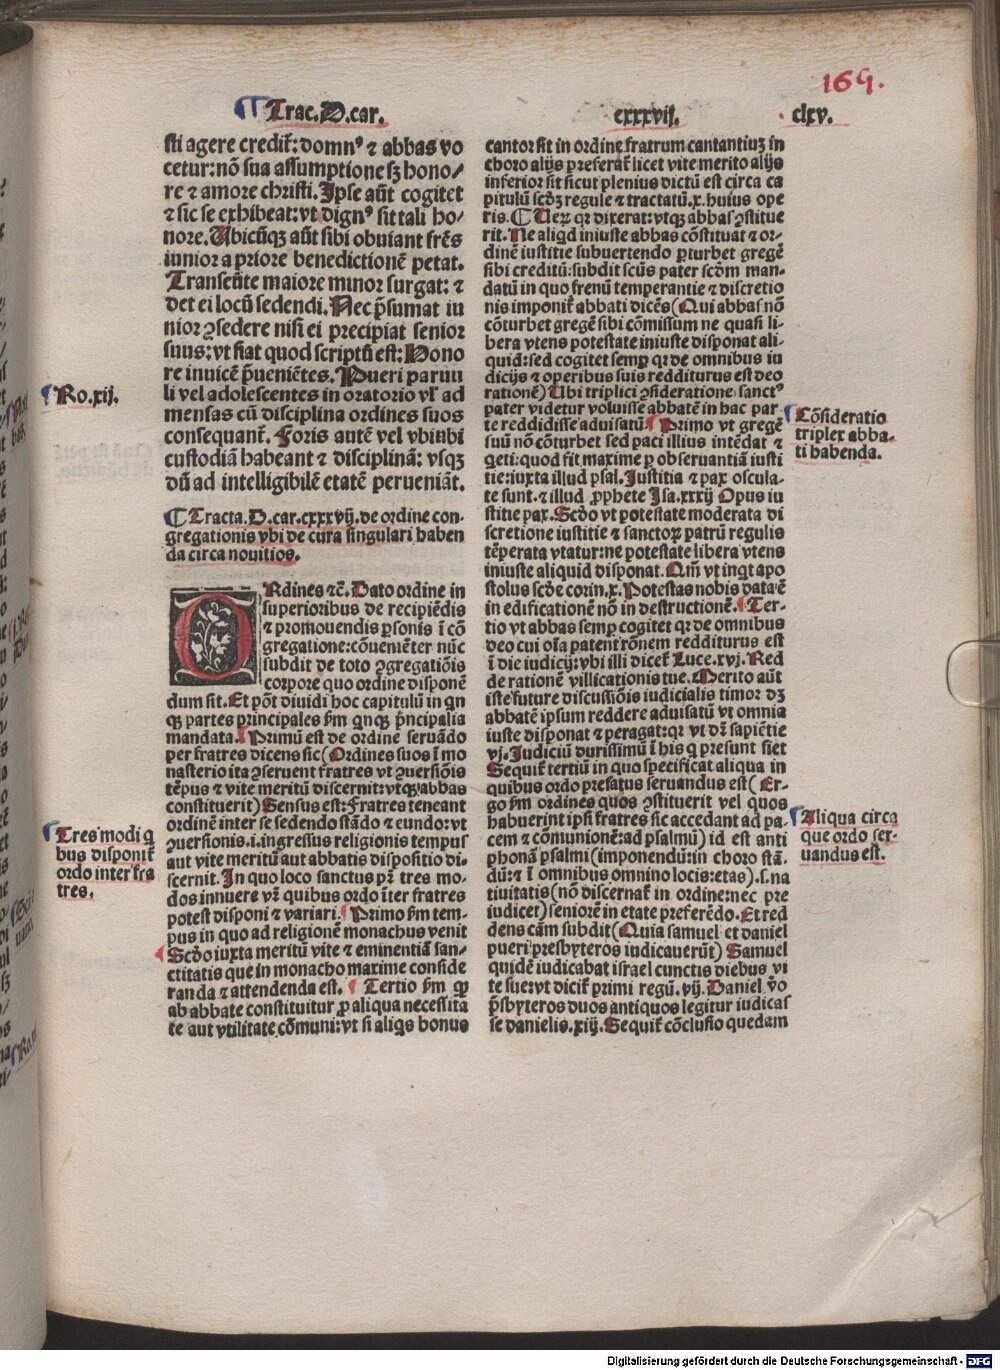 165.
Trac. D. car.
cxxxvij.
clxv.
sti agere credit᷑: domnꝰ ⁊ abbas vo
cetur: nō sua assumptione sꝫ hono/
re ⁊ amore christi. Ipse aūt cogitet
⁊ sic se exhibeat: vt dignꝰ sit tali ho/
nore. Ubicūqꝫ aūt sibi obuiant frēs
iunior a priore benedictionē petat.
Transeūte maiore minor surgat: ⁊
det ei locū sedendi. Nec p̄sumat iu
nior ꝯsedere nisi ei precipiat senior
suus: vt fiat quod scriptū est: Hono
re inuicē p̄ueniētes. Pueri paruu
li vel adolescentes in oratorio vl᷑ ad
mensas cū disciplina ordines suos
consequant᷑. Foris autē vel vbiubi
custodiā habeant ⁊ disciplinā: vsqꝫ
dū ad intelligibilē etatē perueniāt.
Ro. xij.
¶ Tracta. D. car. cxxxvij. de ordine con-
gregationis vbi de cura singulari haben
da circa nouitios.
ORdines ⁊c̄. Dato ordine in
superioribus de recipiēdis
⁊ promouendis ꝑsonis ī cō
gregatione: cōueniēter nūc
subdit de toto ꝯgregatiōis
corpore quo ordine disponē
dum sit. Et pōt diuidi hoc capitulū in qn
qꝫ partes principales ẜm qnqꝫ p̄ncipalia
mandata. Primū est de ordine seruādo
per fratres dicens sic (Ordines suos ī mo
nasterio ita ꝯseruent fratres vt ꝯuersiōis
tēpus ⁊ vite meritū discernit: vtqꝫ abbas
constituerit) Sensus est: Fratres teneant
ordinē inter se sedendo stādo ⁊ eundo: vt
ꝯuersionis .i. ingressus religionis tempus
aut vite meritū aut abbatis dispositio di-
scernit. In quo loco sanctus pr̄ tres mo-
dos innuere vr̄ quibus ordo īter fratres
potest disponi ⁊ variari. Primo ẜm tem-
pus in quo ad religionē monachus venit
Scd̄o iuxta meritū vite ⁊ eminentiā san-
ctitatis que in monacho maxime conside
randa ⁊ attendenda est. Tertio ẜm qꝫ
ab abbate constituitur ꝓ aliqua necessita
te aut vtilitate cōmuni: vt si aliqs bonus
Tres modi q̄
bus disponit᷑
ordo inter fra
tres.
cantor sit in ordine fratrum cantantiuꝫ in
choro alijs preferat᷑ licet vite merito alijs
inferior sit sicut plenius dictū est circa ca
pitulū scd̄ꝫ regule ⁊ tractatū .x. huius ope
ris. ¶ Ueꝝ qꝛ dixerat: vtqꝫ abbas ꝯstitue
rit. Ne aliqd iniuste abbas cōstituat ⁊ or-
dinē iustitie subuertendo ꝑturbet gregē
sibi creditū: subdit scūs pater scd̄m man-
datū in quo frenū temperantie ⁊ discretio
nis imponit᷑ abbati dicēs (Qui abbas nō
cōturbet gregē sibi cōmissum ne quasi li-
bera vtens potestate iniuste disponat ali-
quid: sed cogitet semꝑ qꝛ de omnibus iu
dicijs ⁊ operibus suis redditurus est deo
rationē) Ubi triplici ꝯsideratione: sanctꝰ
pater videtur voluisse abbatē in hac par-
te reddidisse aduisatū. Primo vt gregē
suū nō cōturbet sed paci illius intēdat ⁊
geti: quod fit maxime ꝑ obseruantiā iusti
tie: iuxta illud psal. Iustitia ⁊ pax oscula-
te sunt. ⁊ illud ꝓphete Isa. xxxij Opus iu
stitie pax. Scd̄o vt potestate moderata di
scretione iustitie ⁊ sanctoꝝ patrū regulis
tēperata vtatur: ne potestate libera vtens
iniuste aliquid disponat. Qm̄ vt inqt apo
stolus scd̄e corin. x. Potestas nobis data ē
in edificationē nō in destructionē. Ter-
tio vt abbas semꝑ cogitet qꝛ de omnibus
deo cui oīa patent rōnem redditurus est
ī die iudicij: vbi illi dicet᷑ Luce. xvj. Red
de rationē villicationis tue. Merito aūt
iste future discussiōis iudicialis timor dꝫ
abbatē ipsum reddere aduisatū vt omnia
iuste disponat ⁊ peragat: qꝛ vt dꝛ̄ sapiētie
vj. Iudiciū durissimū ī his q̄ presunt fiet
Sequit᷑ tertiū in quo specificat aliqua in
quibus ordo prefatus seruandus est (Er-
go ẜm ordines quos ꝯstituerit vel quos
habuerint ipsi fratres sic accedant ad pa-
cem ⁊ cōmunionē: ad psalmū) id est anti
phonā psalmi (imponendū: in choro stā-
dū: ⁊ ī omnibus omnino locis: etas) .s. na
tiuitatis (nō discernat᷑ in ordine: nec pre
iudicet) seniorē in etate preferēdo. Et red
dens cām subdit (Quia samuel et daniel
pueri presbyteros iudicauerūt) Samuel
quidē iudicabat israel cunctis diebus vi
te sue: vt dicit᷑ primi regū. vij. Daniel v̄o
p̄sbyteros duos antiquos legitur iudicas
se danielis. xiij. Sequit᷑ cōclusio quedam
Cōsideratio
triplex abba-
ti habenda.
Aliqua circa
que ordo ser-
uandus est.
Digitalisierung gefördert durch die Deutsche Forschungsgemeinschaft - DFG